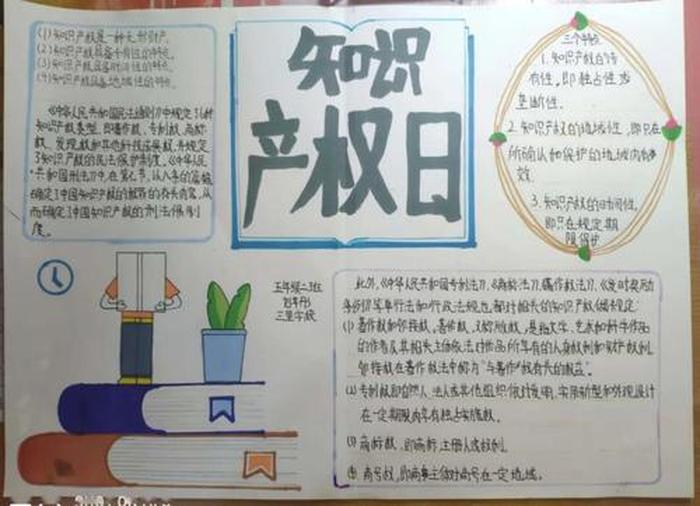 (1)知识产权是一种无形财产。
(2)知识产权具备专有性的特点。
(3)知识产权具备时间性的特点。
(4)知识产权具备地域性的特点。
《中华人民共和国民法通则》中规定了6种
知识产权类型,即著作权、专利权、商标
权、发现权和其他科技成果权,并规定
了知识产权的民法保护制度。《中华人民
共和国刑法》中,在第七节,从八条的篇幅
确定了中国知识产权的犯罪的有关内容,从
而确定了中国知识产权的刑法保护制
度。
知识
产权日
三个特点
1.知识产权的专
有性,即独占性或
垄断性。
2.知识产权的地域性,即只在
所确认和保护的地域内有
效
3.知识产权的时间性,
即只在规定期
限保护
五年级二班
三里学校
此外,《中华人民共和国专利法》、《商标法》、《著作权法》、《发明奖励
条例》等单行法和行政法规也都对相关的知识产权做规定:
(1)著作权和邻接权,著作权,又称版权,是指文学、艺术和科学作品
的作者及其相关主体依法对作品所享有的人身权利和财产权利。
邻接权在著作权法中称为“与著作权有关的权益”。
(2)专利权即自然人、法人或其他组织依法对发明、实用新型和外观设计
在一定期限内享有独占实施权。
商标权,即商标注册人或权利。
商号权,即商事主体对商号在一定地域。